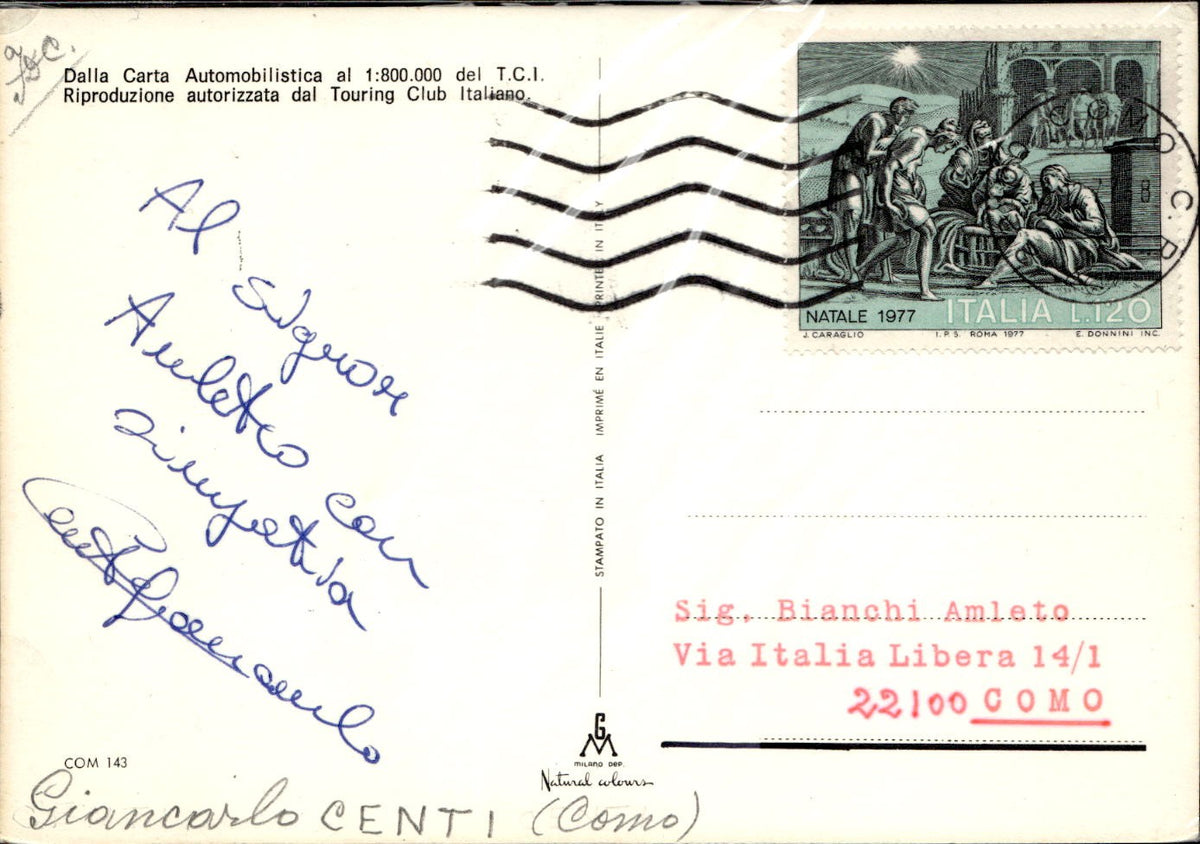 Dalla Carta Automobilistica al 1:800.000 del T.C.I.
Riproduzione autorizzata dal Touring Club Italiano.
Al Signor
Amleto con
simpatia
Centi Giancarlo
COM 143
Giancarlo CENTI (Como)
STAMPATO IN ITALIA IMPRIMÉ EN ITALIE PRINTED IN ITALY
GM
MILANO DEP.
Natural colours
NATALE 1977 ITALIA L.120
J. CARAGLIO I.P.S. ROMA 1977 E. DONNINI INC.
COMO C.P.
Sig. Bianchi Amleto
Via Italia Libera 14/1
22100 COMO